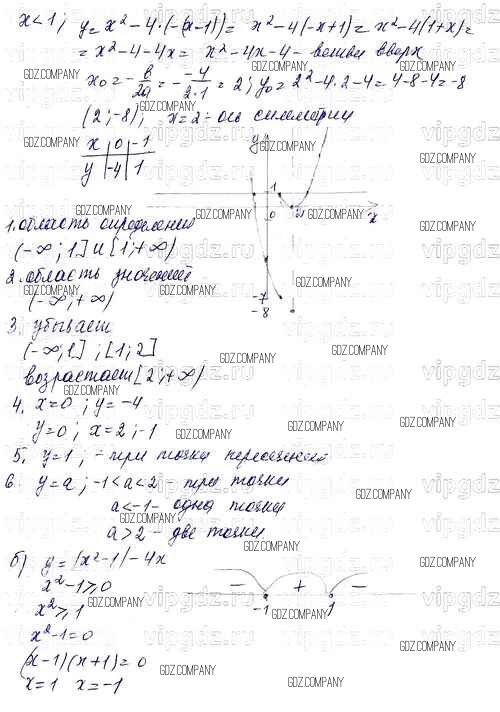 x<1; y=x²-4·(-(x-1))= x²-4(-x+1)=x²-4(1+x)=
=x²-4-4x= x²-4x-4- ветви вверх
x₀=-b/2a=-(-4)/(2·1)=2; y₀=2²-4·2-4=4-8-4=-8
(2;-8); x=2- ось симметрии
x | 0 | -1
y | -4 | 1
y
1
0
2
x
-7
-8
1. область определения
(-∞;1] и [1;+∞)
2. область значений
(-∞;+∞)
3. убывает
(-∞;1] ; [1;2]
возрастает [2;+∞)
4. x=0; y=-4
y=0; x=2;-1
5. y=1; - три точки пересечения
6. y=a; -1<a<2 - три точки
a<-1- одна точка
a>2 - две точки
б) y=|x²-1|-4x
x²-1≥0
x²≥1
x²-1=0
(x-1)(x+1)=0
x=1 x=-1
- + -
-1 1
GDZ.COMPANY
vipgdz.ru